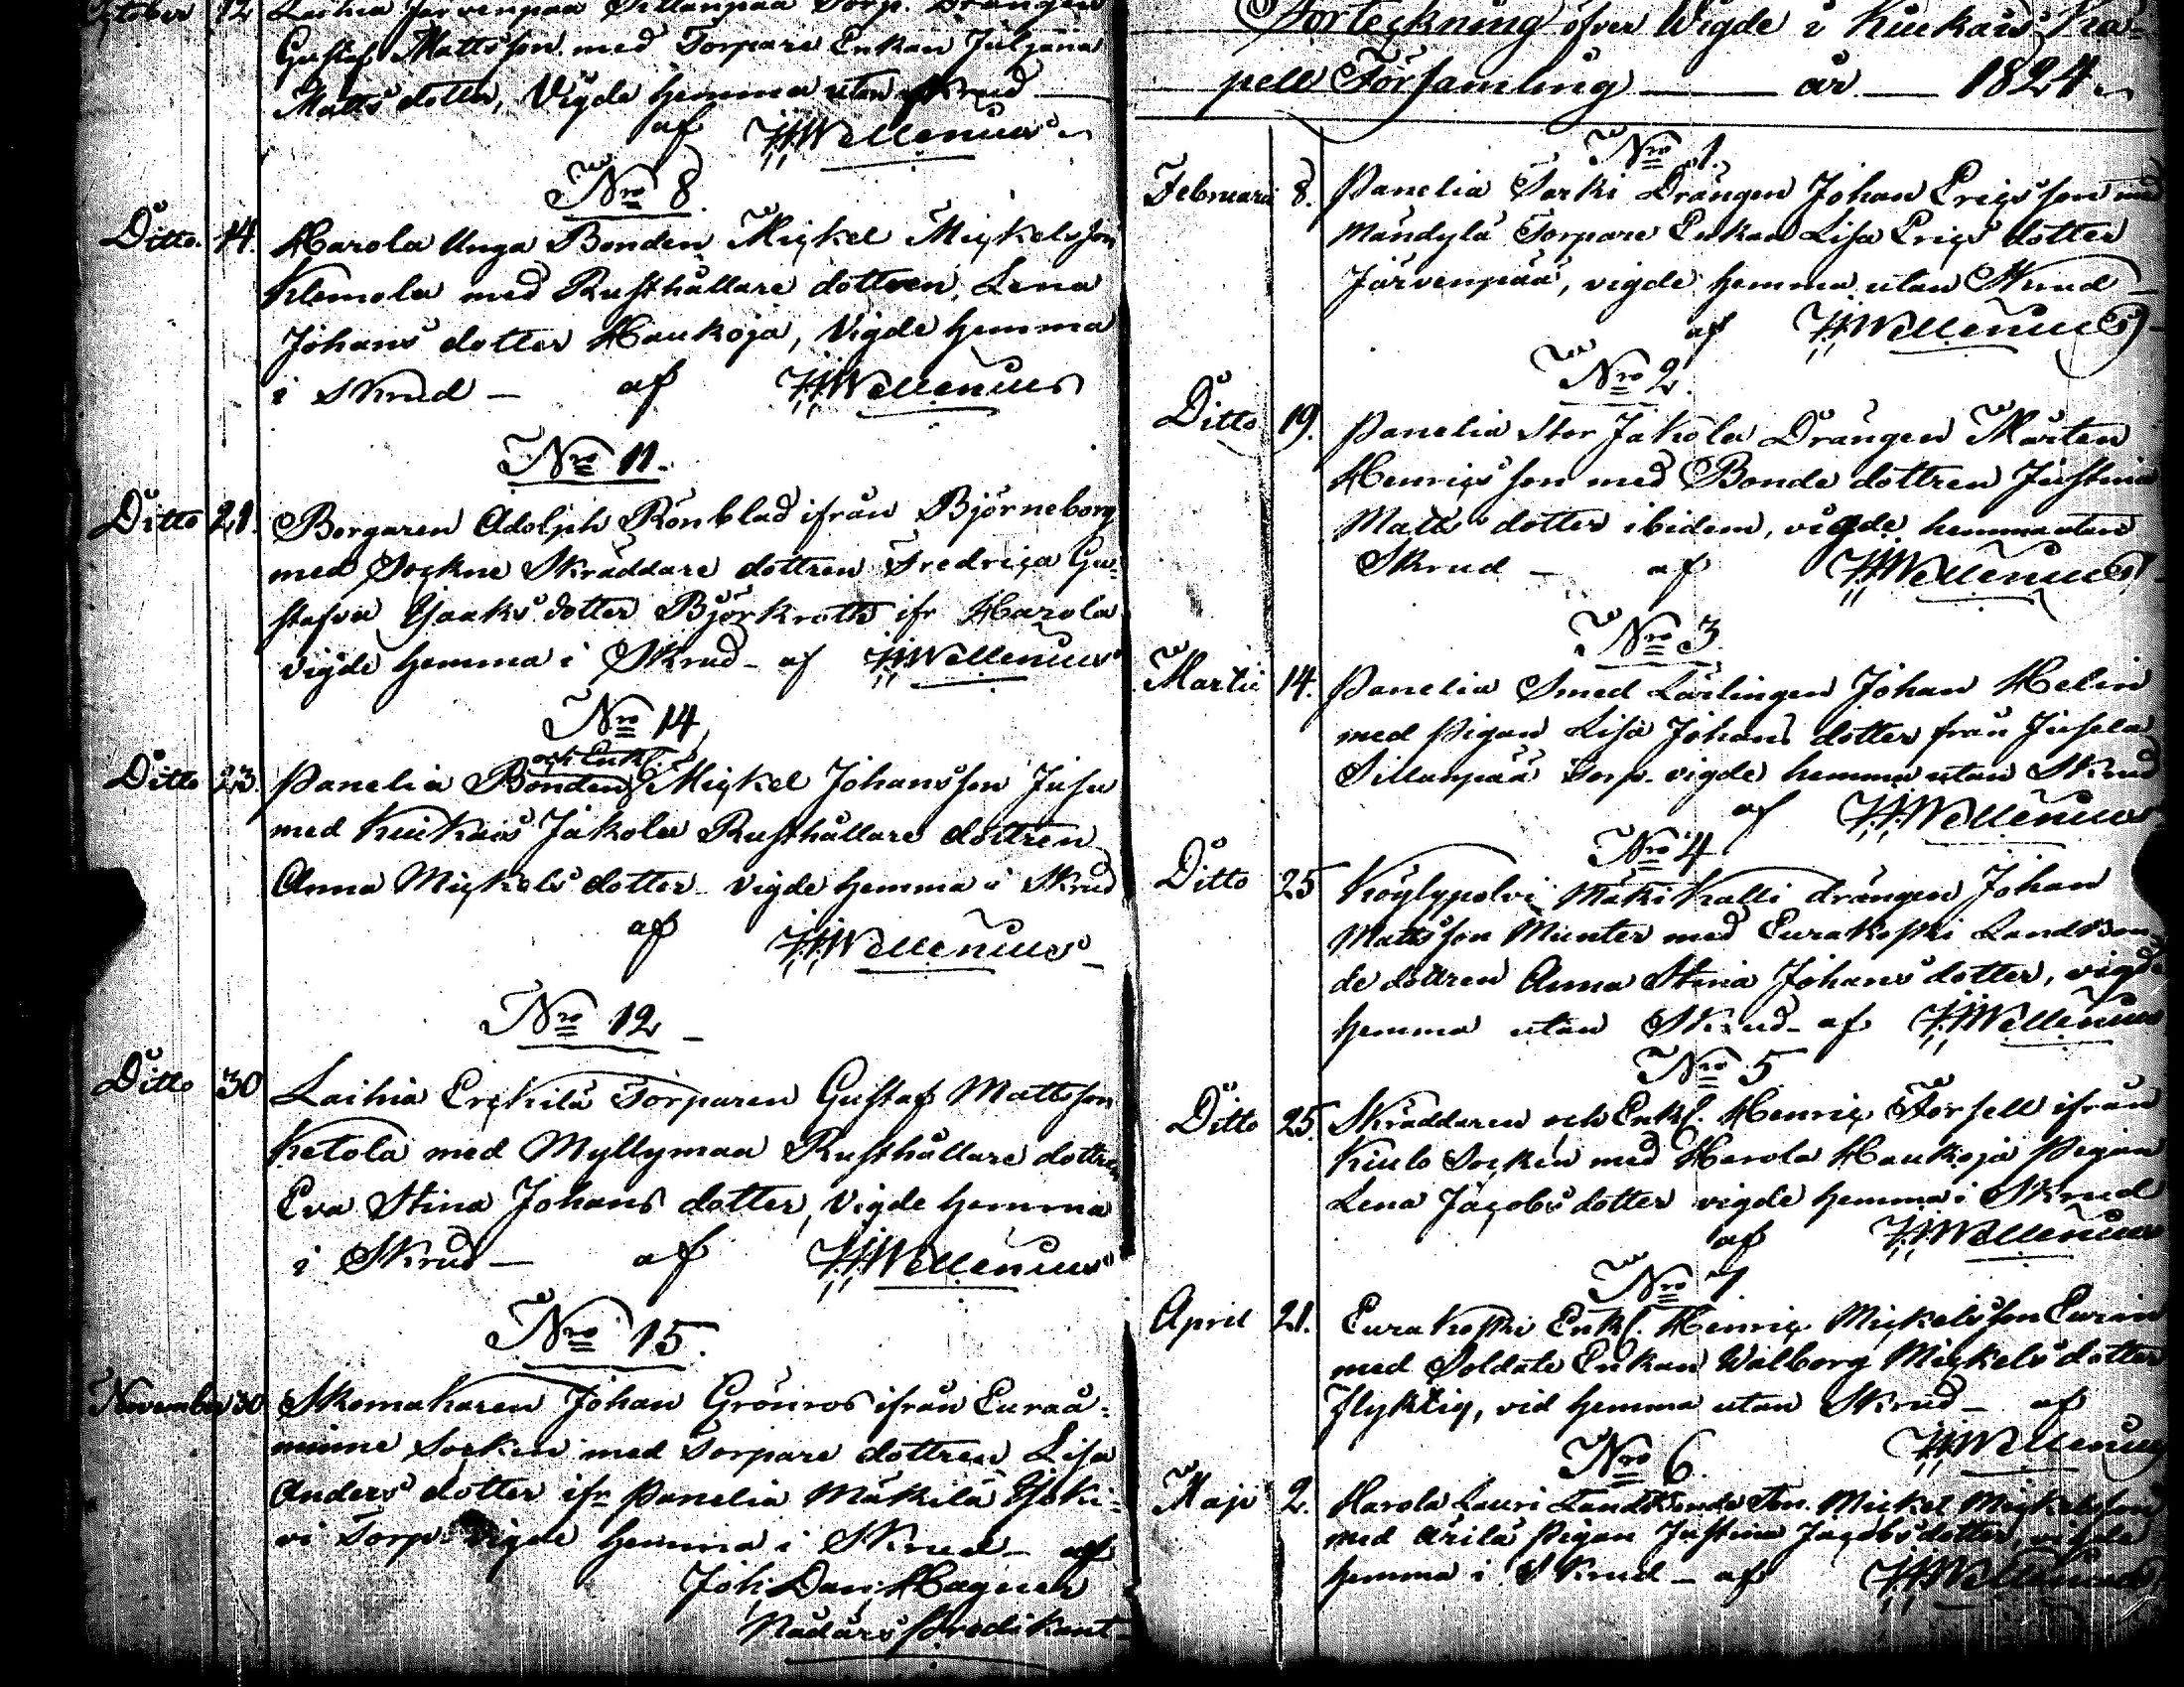 October 12 Laihia Järvenpää Sillanpää Torp. Drängen
Gustaf Mattsson med Torpare Enkan Juljana
Matts dotter, Vigde hemma utan Skrud
af HWellenius
Nro 8.
Ditto 14. Harola Unga Bonden Mickel Mickelsson
Klemola med Rusthållare dottren Lena
Johans dotter Haukoja, Vigde hemma
i Skrud – af HWellenius
Nro 11.
Ditto 21. Borgaren Adolph Rönblad ifrån Björneborg
med Sockne Skräddare dottren Fredrica Gu-
stafva Isaaks dotter Björkroth ifr Harola
vigde hemma i Skrud – af HWellenius
Nro 14
och Enkl.
Ditto 23. Panelia Bonden Mickel Johansson Jusu
med Kiukais Jakola Rusthållare dottren
Anna Mickels dotter – vigde hemma i Skrud
af HWellenius –
Nro 12 –
Ditto 30 Laihia Erckilä Torparen Gustaf Mattsson
Ketola med Myllymaa Rusthållare dottren
Eva Stina Johans dotter, Vigde hemma
i Skrud – af HWellenius
Nro 15.
November 30 Skomakaren Johan Grönros ifrån Euraå-
minne Socken med Torpare dottren Lisa
Anders dotter ifr Panelia Mäkilä Isoki-
vi Torp vigde hemma i Skrud – af
Joh: Dan: Hagner
Nådårs Predikant –
Förteckning öfver Wigde i Kiukais Ka-
pell Församling — år — 1824
Nro 1.
Februari 8. Panelia Sarki Drängen Johan Ericsson med
Mändylä Torpare Enkan Lisa Erics dotter
Järvenpää, vigde hemma utan Skrud –
af HWellenius –
Nro 2.
Ditto 19. Panelia Stor Jakola Drängen Mårten
Henricsson med Bonde dottren Justina
Matts dotter ibidem, vigde hemma utan
Skrud – af HWellenius –
Nro 3.
Martii 14. Panelia Smed Lärlingen Johan Helin
med Pigan Lisa Johans dotter från Jusela
Sillanpää Torp. vigde hemma utan Skrud
af HWellenius
Nro 4
Ditto 25 Köylypolvi Mäki Kalli drängen Johan
Mattsson Munter med Eurakoski Landbon-
de dottren Anna Stina Johans dotter, vigde
hemma utan Skrud – af HWellenius
Nro 5
Ditto 25. Skräddaren och Enkl. Henric Forsell ifrån
Kiulo Socken med Harola Haukoja Pigan
Lena Jacobs dotter vigde hemma i Skrud
af HWellenius
Nro 7.
April 21. Eurakoski Enkl. Henric Mickelsson Eurén
med Soldate Enkan Walborg Mickels dotter
Flyktig, vid hemma utan Skrud – af
HWellenius
Nro 6.
Maji 2. Harola Lauri Landbonde Son Mickel Mickelsson
med Arilä Pigan Justina Jacobs dotter, vigde
hemma i Skrud – af HWellenius